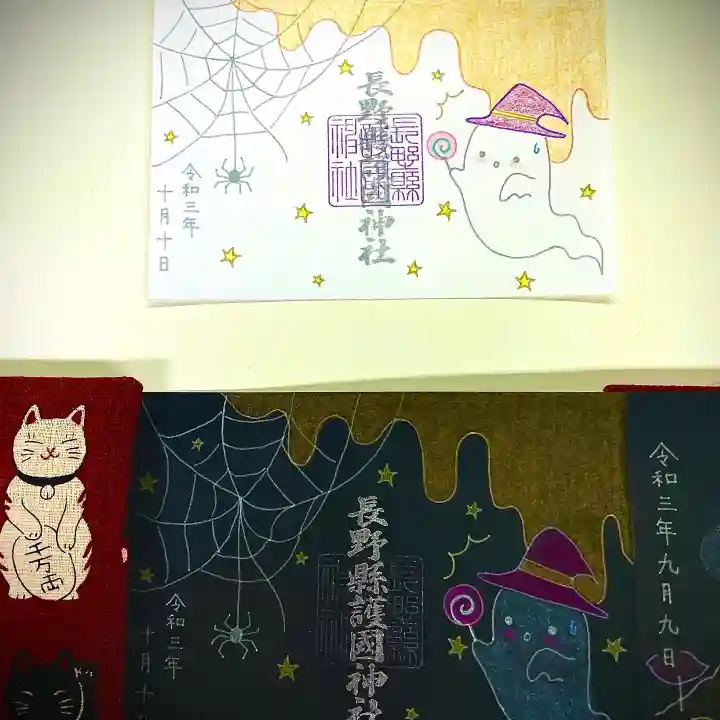 長野縣護國神社
長野縣
護國神社
令和三年
十月十日
長野縣護國神社
令和三年
十月十
令和三年九月九日
千万両